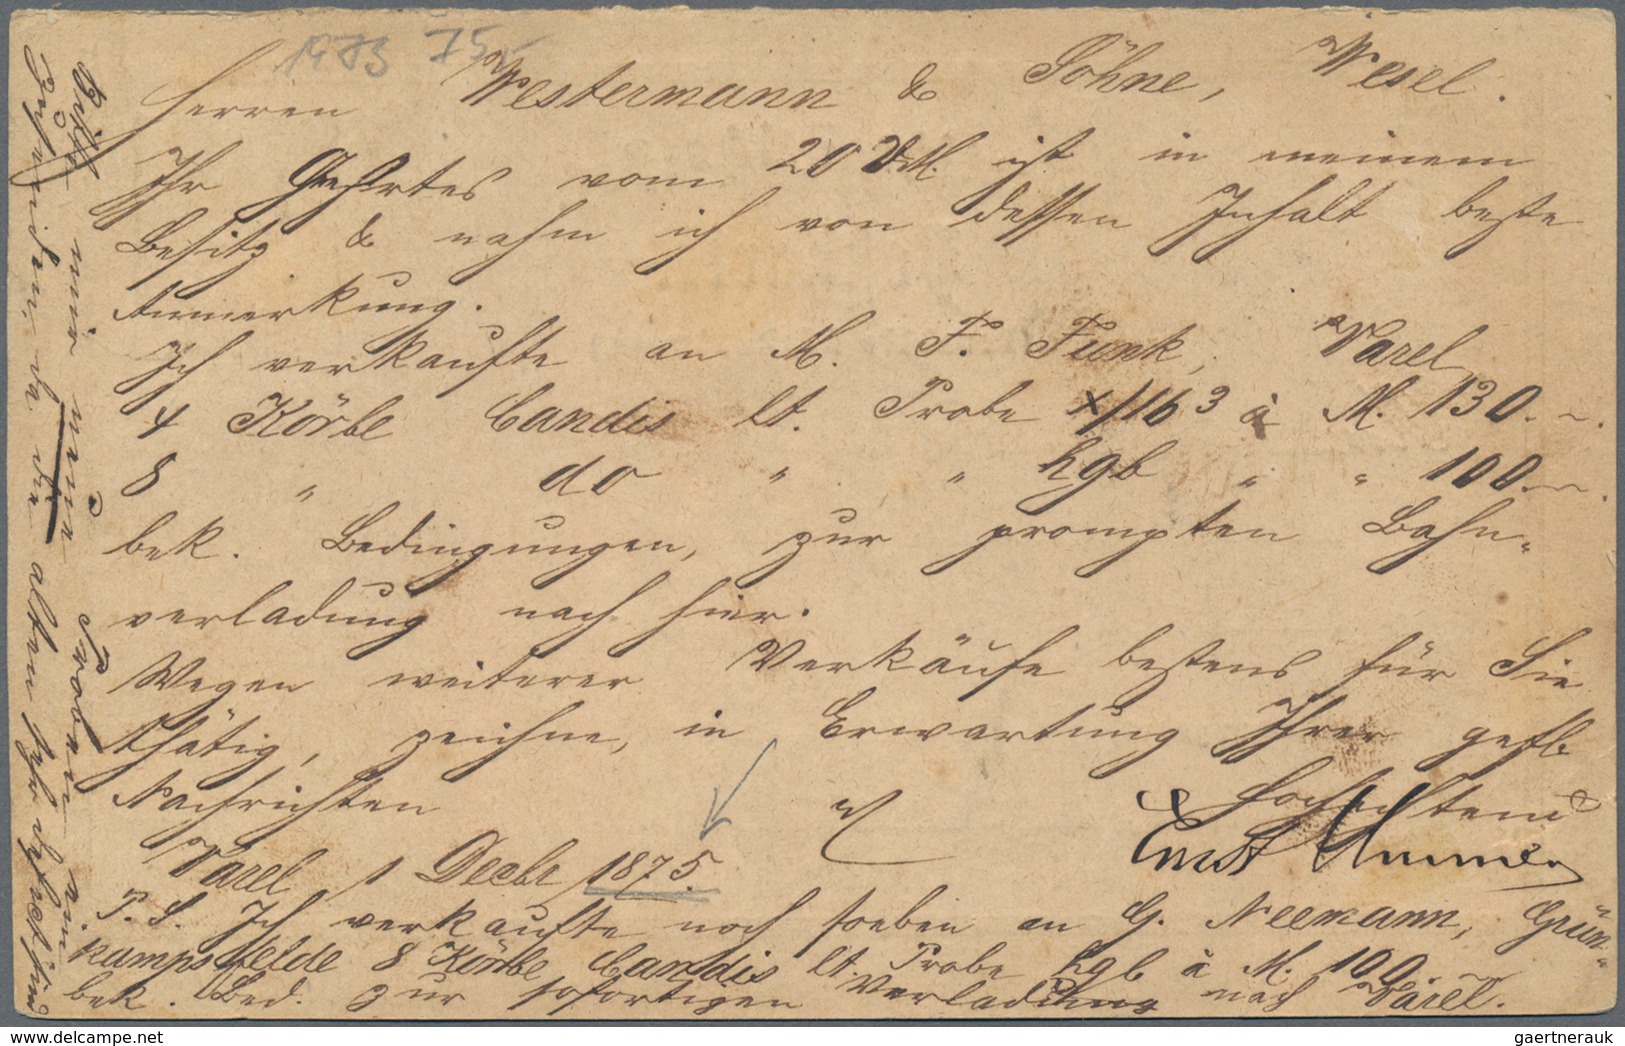 1983 75,-
Herren Westermann & Söhne, Wesel.
Ihr Geehrtes vom 20 v.M. ist in meinem
Besitz & nahm ich von dessen Inhalt beste
Anmerkung.
Ich verkaufte an M. F. Funk, Varel
4 Körbe Candis lt. Probe X/116 3 à M. 130.–.
8 " do " " hgb " " 100.–.
bek. Bedingungen, zur prompten Bahn-
verladung nach hier.
Wegen weiterer Verkäufe bestens für Sie
thätig, zeichne, in Erwartung Ihrer gefl.
Nachrichten
Hochachtend
Ernst
Varel 1 Decbr 1875
P.S. Ich verkaufte noch soeben an G. Neemann, Grün-
kampsfelde 8 Körbe Candis lt. Probe hgb à M. 100.
bek. Bed. zur sofortigen Verladung nach Varel.
Bitte mir neue Proben ein
zusenden, da die alten sehr
delta-cost.com
gaertnerauk